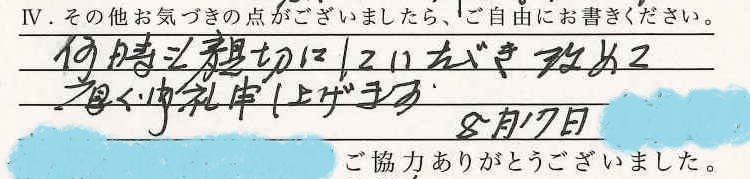 Ⅳ．その他お気づきの点がございましたら、ご自由にお書きください。
何時も親切にしていただき改めて
厚く御礼申し上げます
8月17日
ご協力ありがとうございました。